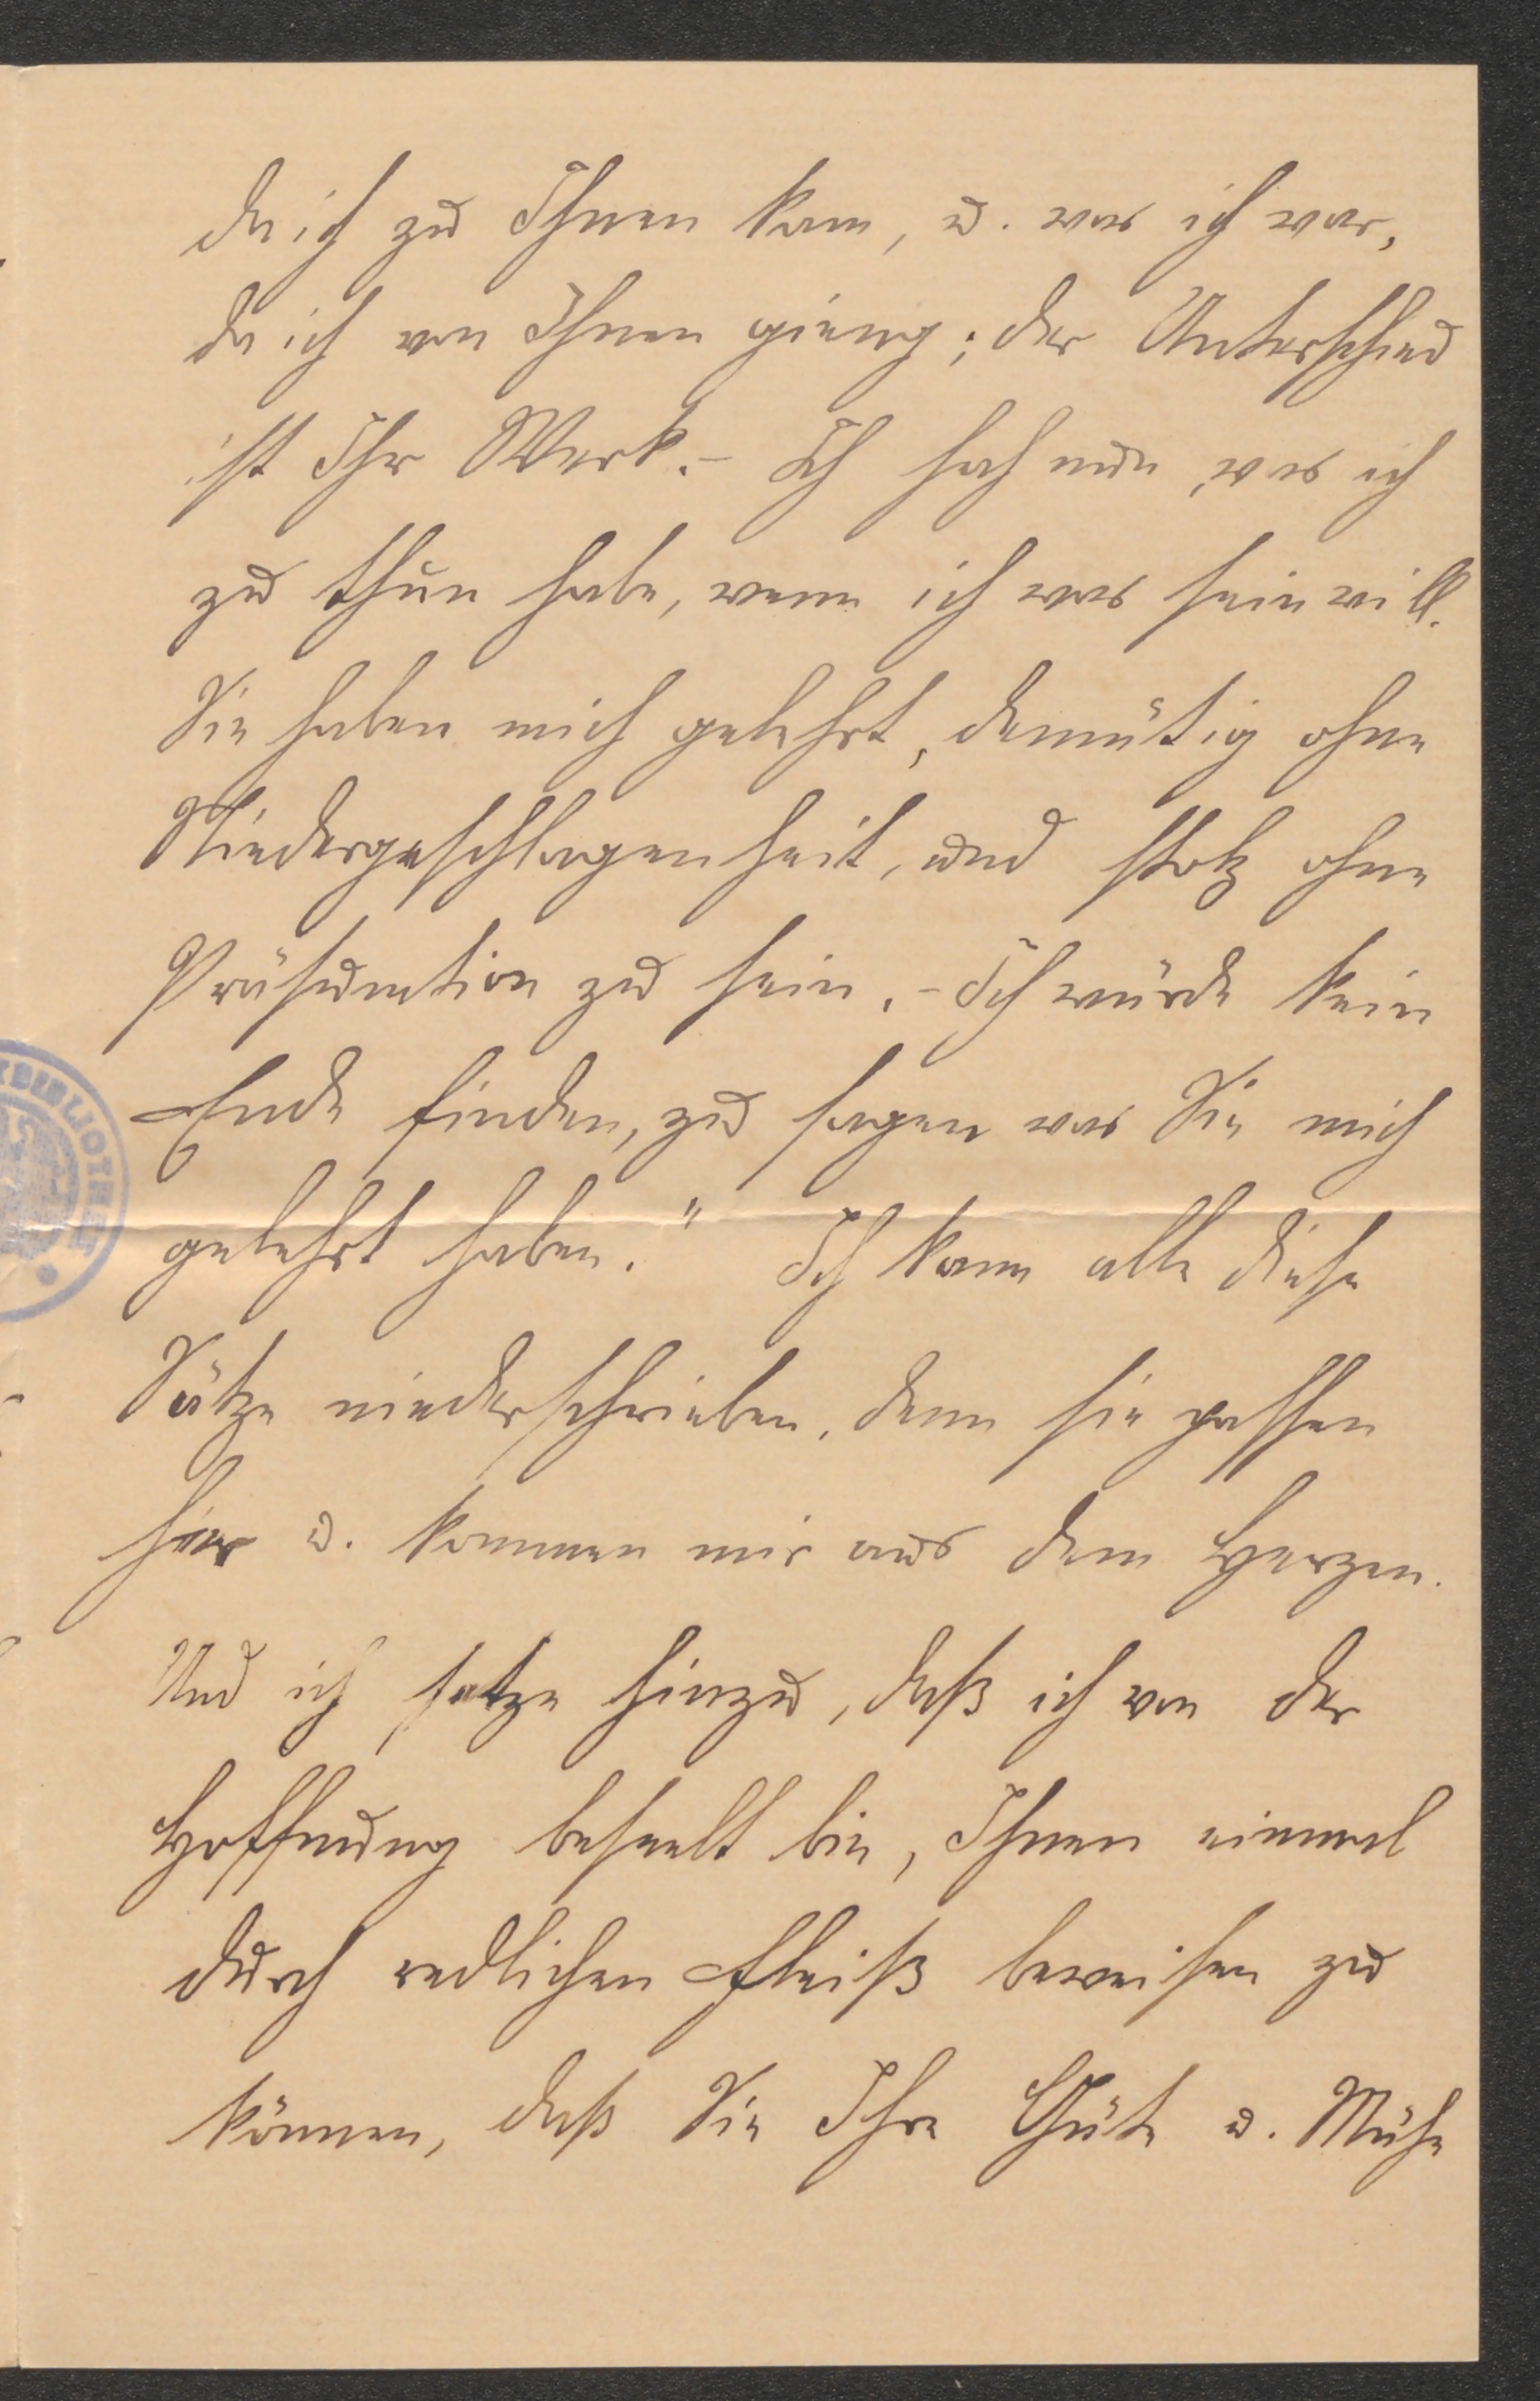 da ich zu Ihnen kam, u. was ich war,
da ich von Ihnen gieng; der Unterschied
ist Ihr Werk. – Ich sah nun, was ich
zu thun habe, wenn ich was sein will.
Sie haben mich gelehrt, demütig ohne
Niedergeschlagenheit, und stolz ohne
Präsumtion zu sein. – Ich würde kein
Ende finden, zu sagen was Sie mich
gelehrt haben." Ich kann alle diese
Sätze niederschrieben, denn sie passen
hier u. kommen mir aus dem Herzen.
Und ich setze hinzu, daß ich von der
Hoffnung beseelt bin, Ihnen einmal
durch redlichen Fleiß beweisen zu
können, daß Sie Ihre Güte u. Mühe